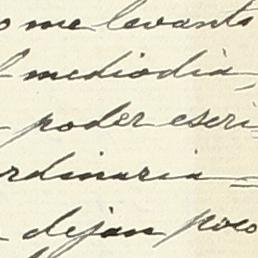 o me levanto
mediodia,
poder escri-
rdinaria=
dejan poco